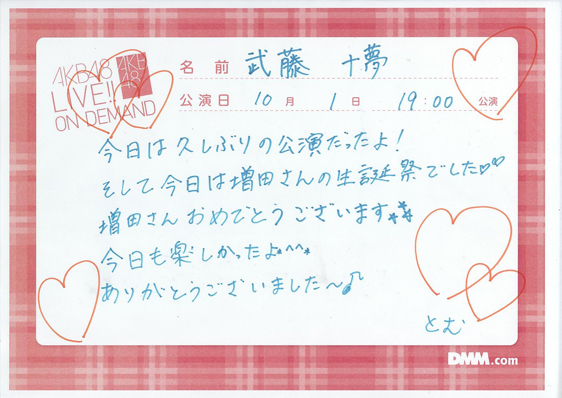 AKB48
LIVE!!
ON DEMAND
AKB
48
名前 武藤 十夢
公演日 10月 1日 19:00 公演
今日は久しぶりの公演だったよ！
そして今日は増田さんの生誕祭でした♡♡
増田さんおめでとうございます
今日も楽しかったよ^^
ありがとうございました〜♪
とむ
DMM.com